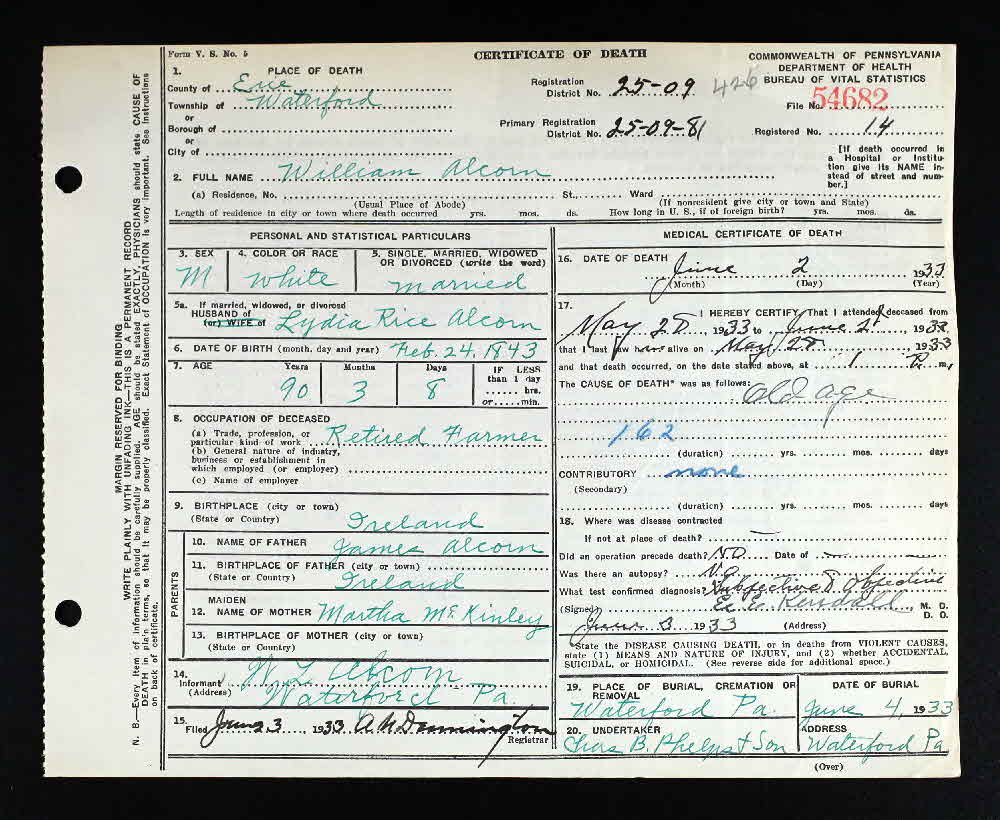 Form V. S. No. 5
CERTIFICATE OF DEATH
COMMONWEALTH OF PENNSYLVANIA
DEPARTMENT OF HEALTH
BUREAU OF VITAL STATISTICS
1. PLACE OF DEATH
County of Erie
Township of Waterford
or
Borough of
or
City of
Registration District No. 25-09
426
File No. 54682
Primary Registration District No. 25-09-81
Registered No. 14
[If death occurred in a Hospital or Institution give its NAME instead of street and number.]
2. FULL NAME William Alcorn
(a) Residence, No. St., Ward
(Usual Place of Abode) (If nonresident give city or town and State)
Length of residence in city or town where death occurred yrs. mos. ds. How long in U. S., if of foreign birth? yrs. mos. ds.
PERSONAL AND STATISTICAL PARTICULARS
3. SEX M
4. COLOR OR RACE White
5. SINGLE, MARRIED, WIDOWED OR DIVORCED (write the word) Married
5a. If married, widowed, or divorced
HUSBAND of
(or) WIFE of Lydia Rice Alcorn
6. DATE OF BIRTH (month, day and year) Feb. 24, 1843
7. AGE Years 90 Months 3 Days 8 IF LESS than 1 day hrs. or min.
8. OCCUPATION OF DECEASED
(a) Trade, profession, or particular kind of work Retired Farmer
(b) General nature of industry, business or establishment in which employed (or employer)
(c) Name of employer
9. BIRTHPLACE (city or town)
(State or Country) Ireland
PARENTS
10. NAME OF FATHER James Alcorn
11. BIRTHPLACE OF FATHER (city or town)
(State or Country) Ireland
12. MAIDEN NAME OF MOTHER Martha McKinley
13. BIRTHPLACE OF MOTHER (city or town)
(State or Country)
14. Informant W L Alcorn
(Address) Waterford Pa.
15. Filed June 3, 1933 Registrar
MEDICAL CERTIFICATE OF DEATH
16. DATE OF DEATH June 2 1933
(Month) (Day) (Year)
17. I HEREBY CERTIFY, That I attended deceased from
May 28, 1933 to June 2, 1933
that I last saw him alive on May 28, 1933
and that death occurred, on the date stated above, at 1 P. m.
The CAUSE OF DEATH* was as follows:
Old age
162
(duration) yrs. mos. days
CONTRIBUTORY none
(Secondary)
(duration) yrs. mos. days
18. Where was disease contracted
If not at place of death?
Did an operation precede death? No Date of
Was there an autopsy? No
What test confirmed diagnosis? Subjective & Objective
(Signed) Kendall, M. D. D. O.
June 3 1933 (Address)
*State the DISEASE CAUSING DEATH, or in deaths from VIOLENT CAUSES, state (1) MEANS AND NATURE OF INJURY, and (2) whether ACCIDENTAL, SUICIDAL, or HOMICIDAL. (See reverse side for additional space.)
19. PLACE OF BURIAL, CREMATION OR REMOVAL
Waterford Pa.
DATE OF BURIAL
June 4, 1933
20. UNDERTAKER
Chas B. Phelps & Son
ADDRESS
Waterford Pa
(Over)
MARGIN RESERVED FOR BINDING
WRITE PLAINLY WITH UNFADING INK—THIS IS A PERMANENT RECORD
N. B.—Every item of information should be carefully supplied. AGE should be stated EXACTLY. PHYSICIANS should state CAUSE OF DEATH in plain terms, so that it may be properly classified. Exact Statement of OCCUPATION is very important. See Instructions on back of certificate.